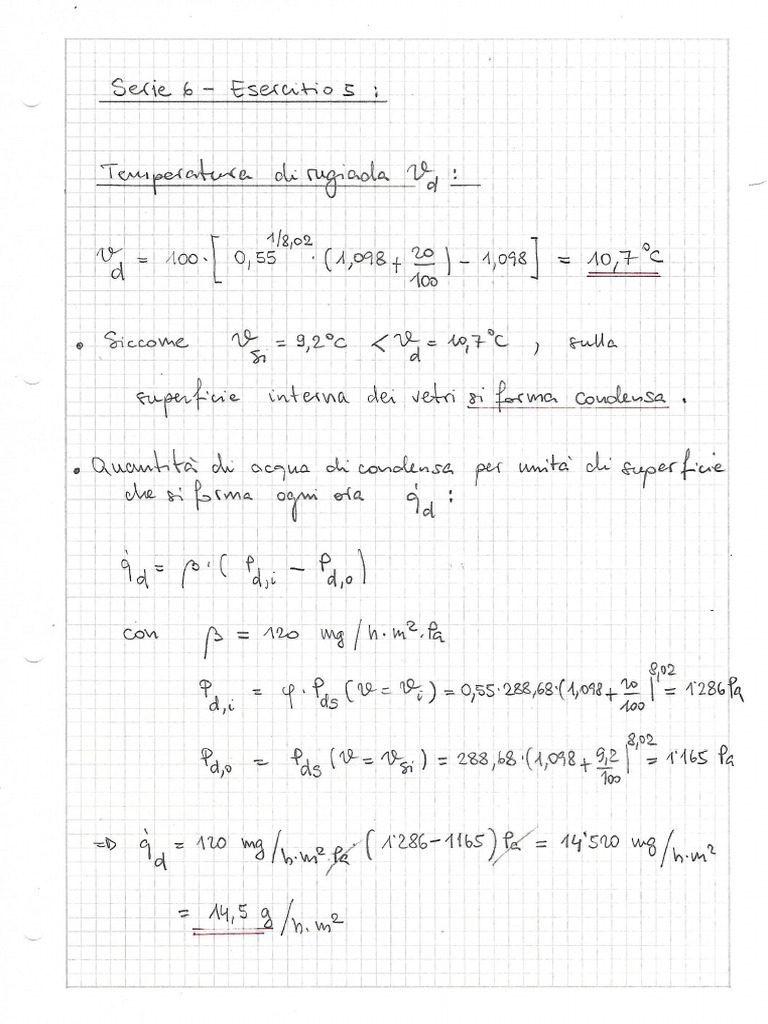 Serie 6 - Esercitio 5 :
Temperatura di rugiada ϑd :
ϑd = 100 · [ 0,55^1/8,02 · (1,098 + 20/100) - 1,098 ] = 10,7 °C
• Siccome ϑsi = 9,2°C < ϑd = 10,7°C , sulla
superficie interna dei vetri si forma condensa .
• Quantità di acqua di condensa per unità di superficie
che si forma ogni ora q̇d :
q̇d = β · ( Pd,i - Pd,o )
con β = 120 mg/h·m²·Pa
Pd,i = φ · Pds (ϑ = ϑi) = 0,55·288,68·(1,098 + 20/100)^8,02 = 1'286 Pa
Pd,o = Pds (ϑ = ϑsi) = 288,68·(1,098 + 9,2/100)^8,02 = 1'165 Pa
=> q̇d = 120 mg/h·m² Pa (1'286 - 1165) Pa = 14'520 mg/h·m²
= 14,5 g/h·m²